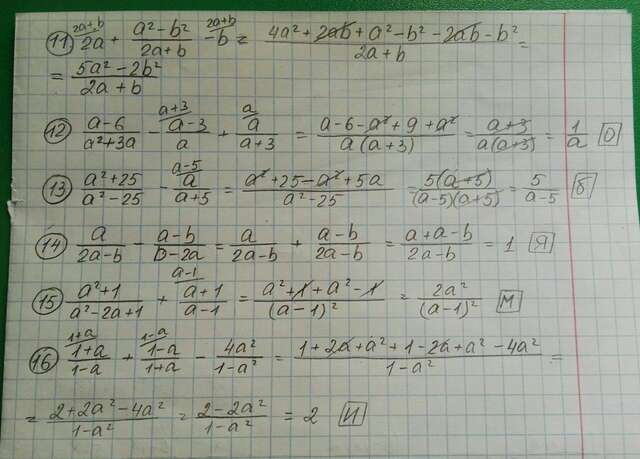 11) 2a (2a+b) + (a²-b²)/(2a+b) - b (2a+b) = (4a²+2ab+a²-b²-2ab-b²)/(2a+b) =
= (5a²-2b²)/(2a+b)
12) (a-6)/(a²+3a) - (a-3)/a (a+3) + a/(a+3) (a) = (a-6-a²+9+a²)/(a(a+3)) = (a+3)/(a(a+3)) = 1/a О
13) (a²+25)/(a²-25) - a/(a+5) (a-5) = (a²+25-a²+5a)/(a²-25) = 5(a+5)/((a-5)(a+5)) = 5/(a-5) Б
14) a/(2a-b) - (a-b)/(b-2a) = a/(2a-b) + (a-b)/(2a-b) = (a+a-b)/(2a-b) = 1 Я
15) (a²+1)/(a²-2a+1) + (a+1)/(a-1) (a-1) = (a²+1+a²-1)/(a-1)² = 2a²/(a-1)² М
16) (1+a)/(1-a) (1+a) + (1-a)/(1+a) (1-a) - 4a²/(1-a²) = (1+2a+a²+1-2a+a²-4a²)/(1-a²) =
= (2+2a²-4a²)/(1-a²) = (2-2a²)/(1-a²) = 2 И